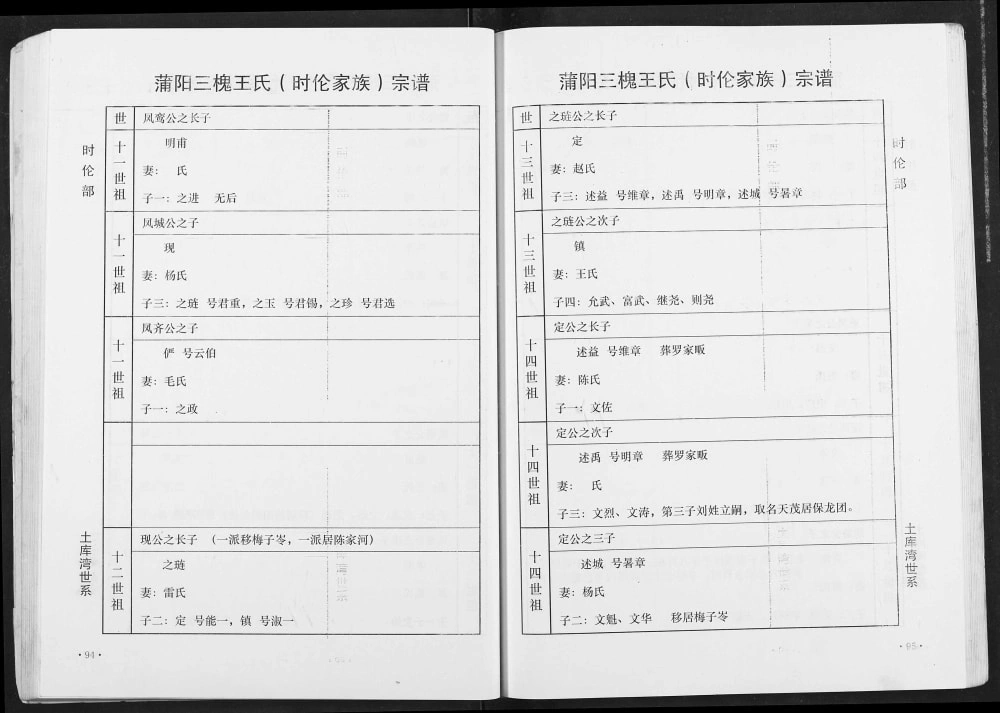 蒲阳三槐王氏（时伦家族）宗谱
时伦部
世
凤鸾公之长子
十一世祖
明甫
妻： 氏
子一：之进 无后
凤城公之子
十一世祖
现
妻：杨氏
子三：之琏 号君重，之玉 号君锡，之珍 号君选
凤齐公之子
十一世祖
俨 号云伯
妻：毛氏
子一：之政
现公之长子 （一派移梅子岺，一派居陈家河）
十二世祖
之琏
妻：雷氏
子二：定 号能一，镇 号淑一
土库湾世系
·94·
蒲阳三槐王氏（时伦家族）宗谱
时伦部
世
之琏公之长子
十三世祖
定
妻：赵氏
子三：述益 号维章，述禹 号明章，述城 号暑章
之琏公之次子
十三世祖
镇
妻：王氏
子四：允武、富武、继尧、则尧
定公之长子
十四世祖
述益 号维章 葬罗家畈
妻：陈氏
子一：文佐
定公之次子
十四世祖
述禹 号明章 葬罗家畈
妻： 氏
子三：文烈、文涛，第三子刘姓立嗣，取名天茂居保龙团。
定公之三子
十四世祖
述城 号暑章
妻：杨氏
子二：文魁、文华 移居梅子岺
土库湾世系
·95·